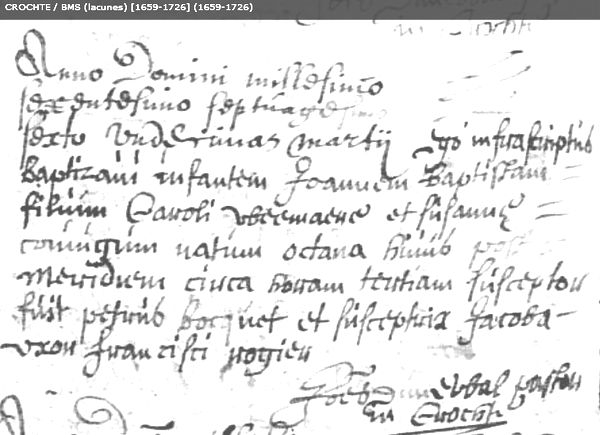 CROCHTE / BMS (lacunes) [1659-1726] (1659-1726)
in Crochte
Anno Domini millesimo
sexcentesimo septuagesimo
sexto undecimas martij ego infrascriptus
baptizavi infantem Joannem Baptistam
filium Caroli et susannæ
coniugum natum octava huius post
meridiem circa horam tertiam susceptor
fuit petrus bocquet et susceptrix Jacoba
uxor francisci rogier
pastor
in Crochte